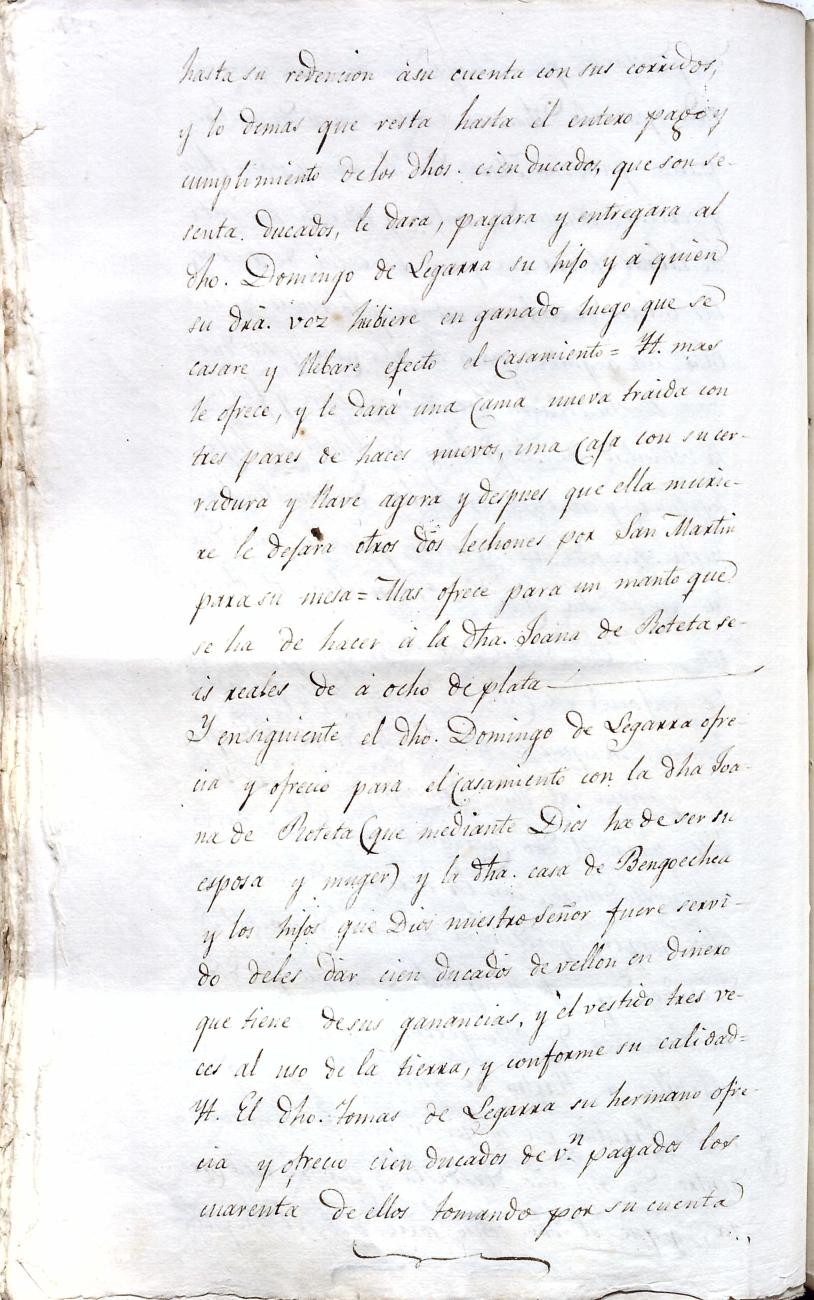 hasta su redencion àsu cuenta con sus corridos,
y lo demas que resta hasta el entero pago y
cumplimiento delos dhos. cien ducados, que son se-
senta ducados, le dara, pagara y entregara al
dho. Domingo de Legarra su hijo y á quien
su dra. voz hibiere en ganado luego que se
casare y llebare efecto el Casamiento = Yt. mas
le ofrece, y le dará una Cama nueva traida con
tres pares de haces nuevos, una Caja con su cer-
radura y llave agora y despues que ella murie-
re le dejara otros dos lechones por San Martin
para su mesa = Mas ofrece para un manto que
se ha de hacer á la dha. Joana de Roteta se-
is reales de á ocho de plata
Y ensiguiente el dho. Domingo de Legarra ofre-
cia y ofrecio para el Casamiento con la dha Joa-
na de Roteta (que mediante Dios ha de ser su
esposa y muger) y la dha. casa de Bengoechea
y los hijos que Dios nuestro Señor fuere servi-
do deles dar cien ducados de vellon en dinero
que tiene desus ganancias, y el vestido tres ve-
ces al uso de la tierra, y conforme su calidad=
Yt. El dho. Tomas de Legarra su hermano ofre-
cia y ofrecio cien ducados de v.n pagados los
cuarenta de ellos tomando por su cuenta